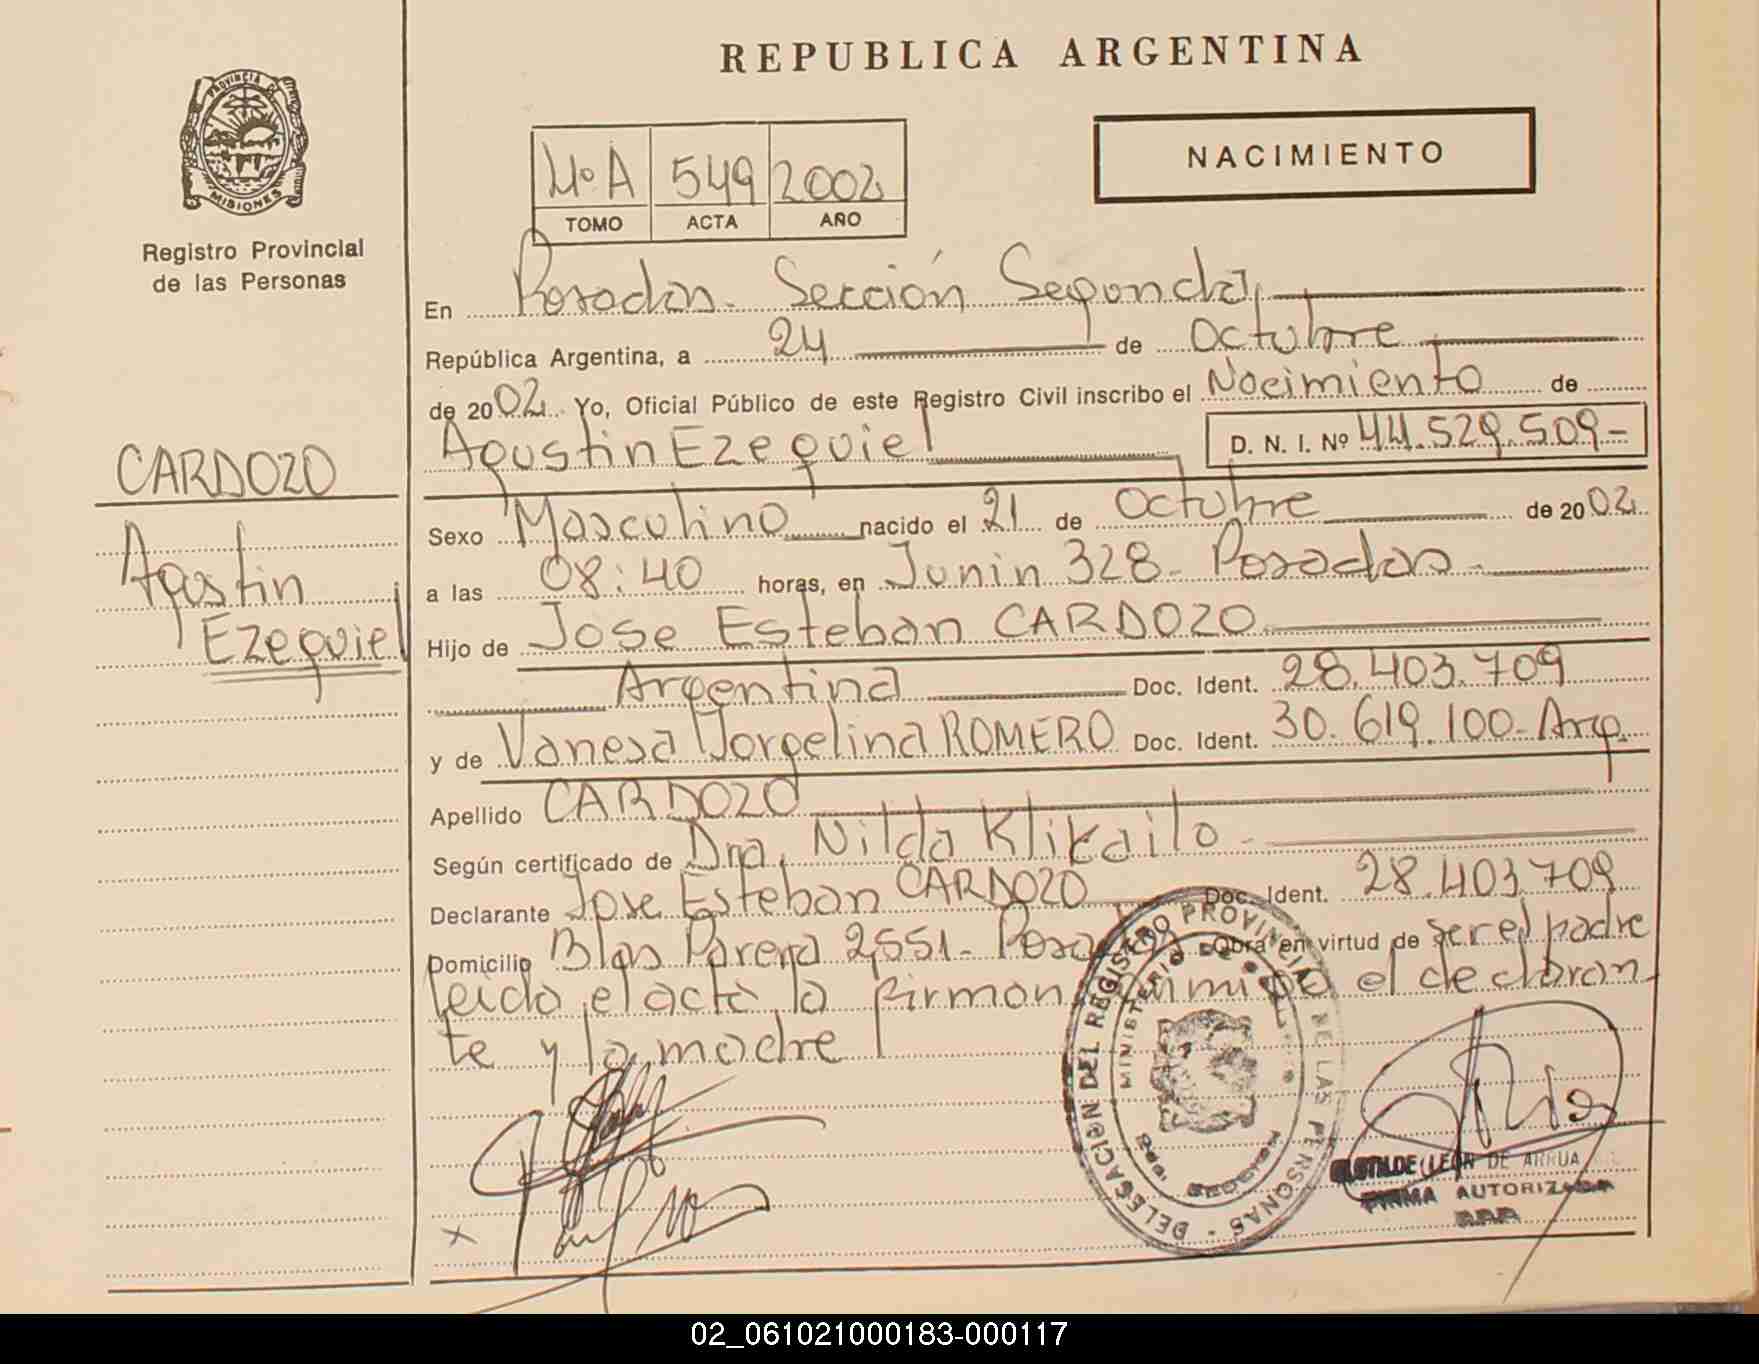 REPUBLICA ARGENTINA
PROVINCIA DE
MISIONES
Registro Provincial
de las Personas
4º A 549 2002
TOMO ACTA AÑO
NACIMIENTO
En Posadas - Sección Segunda,
República Argentina, a 24 de Octubre
de 2002 Yo, Oficial Público de este Registro Civil inscribo el Nacimiento de
Agustin Ezequiel D. N. I. Nº 44.529.509-
CARDOZO
Agustin
Ezequiel
Sexo Masculino nacido el 21 de Octubre de 2002
a las 08:40 horas, en Junin 328 - Posadas -
Hijo de Jose Esteban CARDOZO
Argentina Doc. Ident. 28.403.709
y de Vanesa Yorgelina ROMERO Doc. Ident. 30.619.100 - Arg.
Apellido CARDOZO
Según certificado de Dra. Nilda Klikailo -
Declarante Jose Esteban CARDOZO Doc. Ident. 28.403.709
Domicilio Blas Parera 2551 - Posadas Obra en virtud de ser el padre
leido el acta, la firman el declaran-
te y la madre
DELEGACION DEL REGISTRO PROVINCIAL DE LAS PERSONAS -
MINISTERIO DE
2da. SECCION
CLOTILDE LEON DE ARRUA
FIRMA AUTORIZADA
R.P.P.
02_061021000183-000117